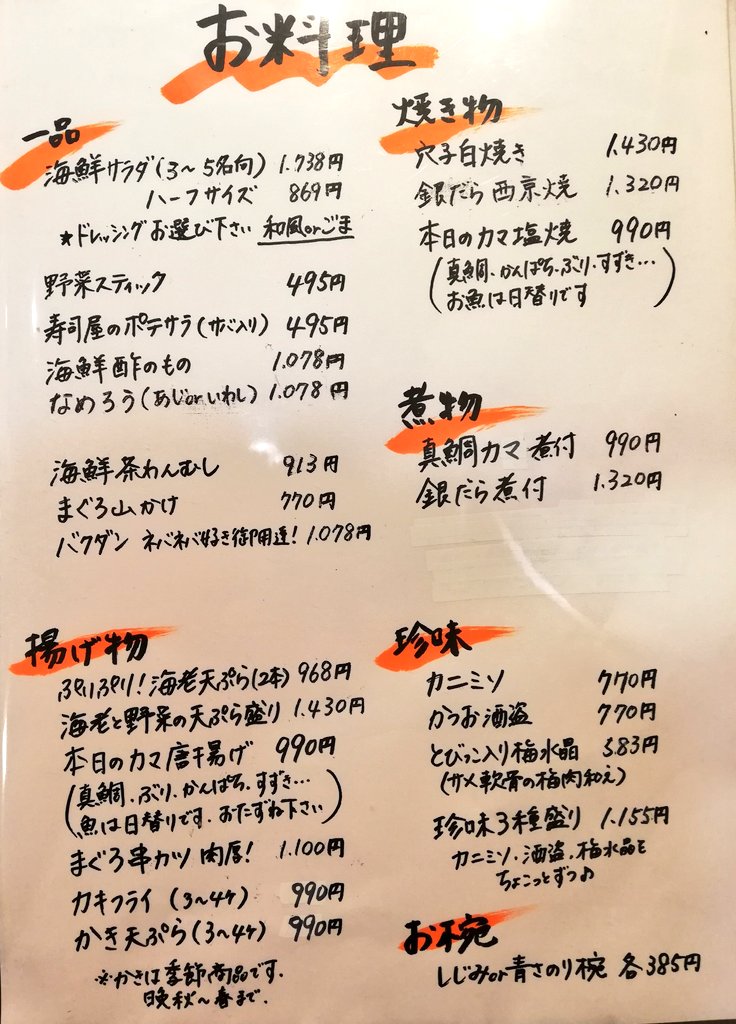 お料理
一品
海鮮サラダ(3〜5名向) 1.738円
ハーフサイズ 869円
★ドレッシングお選び下さい 和風orごま
野菜スティック 495円
寿司屋のポテサラ(サバ入り) 495円
海鮮酢のもの 1.078円
なめろう(あじorいわし) 1.078円
海鮮茶わんむし 913円
まぐろ山かけ 770円
バクダン ネバネバ好き御用達! 1.078円
揚げ物
ぷりぷり!海老天ぷら(2本) 968円
海老と野菜の天ぷら盛り 1.430円
本日のカマ唐揚げ 990円
(真鯛.ぶり.かんぱち.すずき…
魚は日替りです.おたずね下さい)
まぐろ串カツ 肉厚! 1.100円
カキフライ (3〜4ケ) 990円
かき天ぷら(3〜4ケ) 990円
※かきは季節商品です.
晩秋〜春まで.
焼き物
穴子白焼き 1.430円
銀だら西京焼 1.320円
本日のカマ塩焼 990円
(真鯛.かんぱち.ぶり.すずき…
お魚は日替りです)
煮物
真鯛カマ煮付 990円
銀だら煮付 1.320円
珍味
カニミソ 770円
かつお酒盗 770円
とびっこ入り梅水晶 583円
(サメ軟骨の梅肉和え)
珍味3種盛り 1.155円
カニミソ.酒盗.梅水晶を
ちょこっとずつ♪
お椀
しじみor青さのり椀 各385円